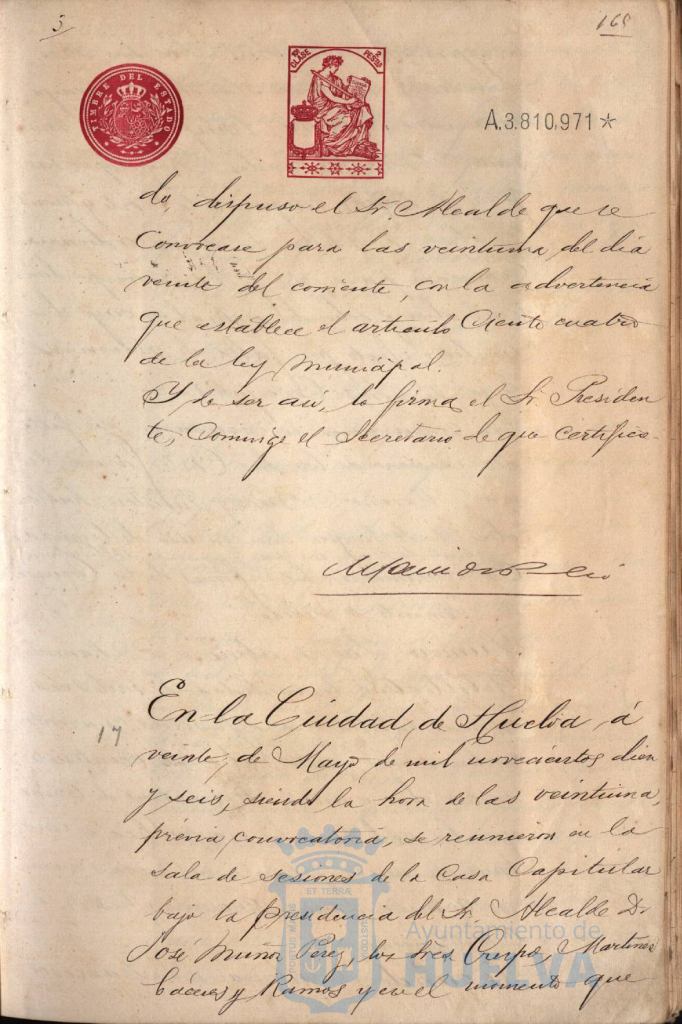 3
165
TIMBRE DEL ESTADO
10ª CLASE
2 PESTAS
A.3.810,971*
do, dispuso el Sr. Alcalde que se
Convocase para las veintiuna del dia
veinte del corriente, con la advertencia
que establece el artículo Ciento cuatro
de la ley municipal.
Y de ser así, lo firma el Sr. Presiden
te, Conmigo el Secretario de que certifico.
17
En la Ciudad de Huelva, á
veinte, de Mayo de mil novecientos diez
y seis, siendo la hora de las veintiuna,
prévia convocatoria, se reunieron en la
sala de sesiones de la Casa Capitular
bajo la presidencia del Sr. Alcalde D.
José Muñoz Perez, los Sres Crespo, Martinez
Cáceres y Ramos y en el momento que
ET TERRÆ
Ayuntamiento de
HUELVA